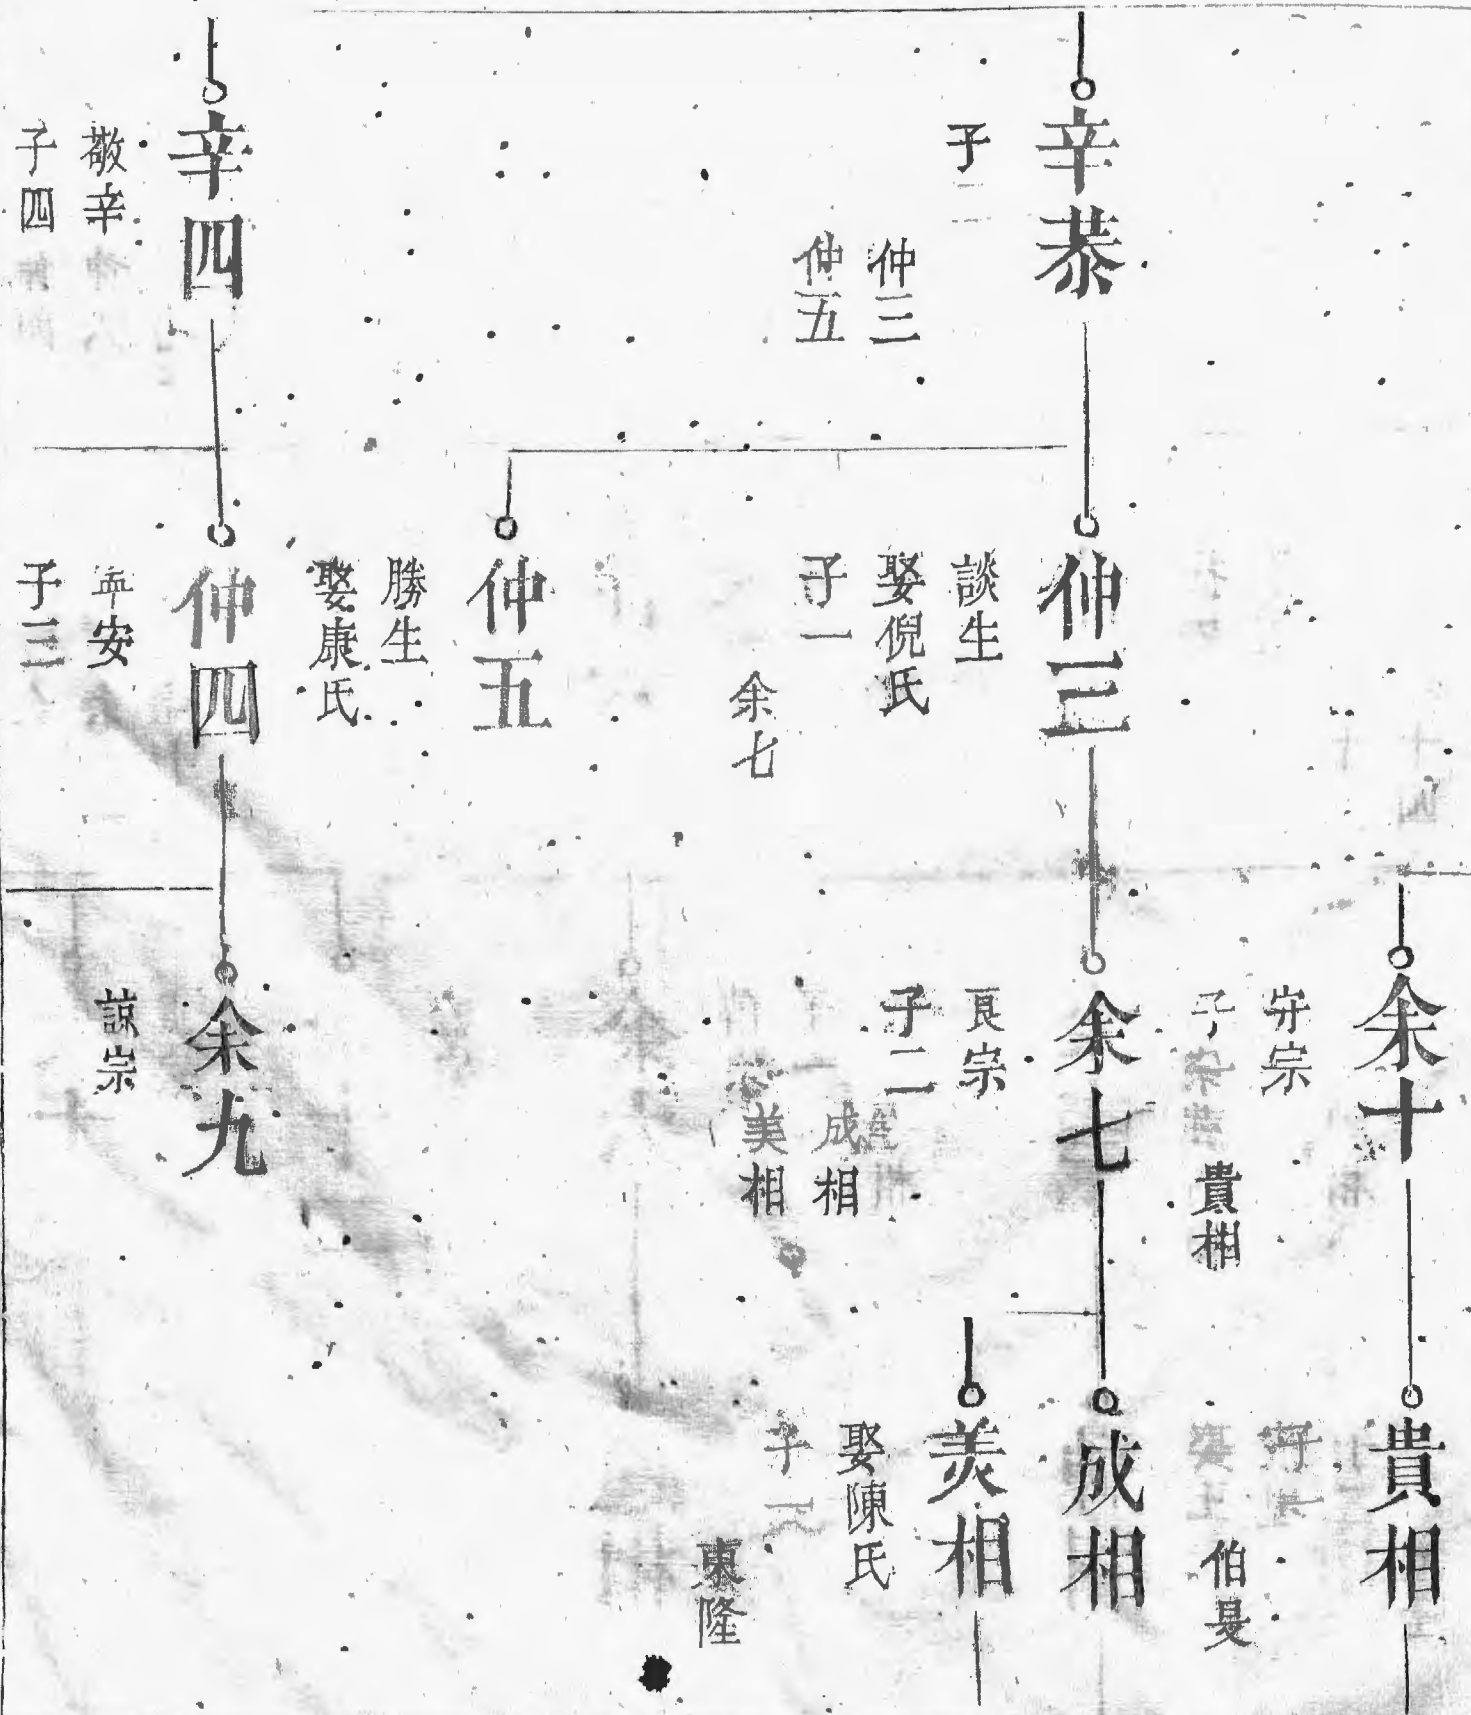 辛恭
子二
仲三
仲五
辛四
敬辛
子四
仲三
談生
娶倪氏
子一
余七
仲五
勝生
娶康氏
仲四
安
子三
余十
宗
子
貴相
余七
良宗
子二
成相
美相
余九
諒宗
貴相
伯是
成相
美相
娶陳氏
子一
東隆